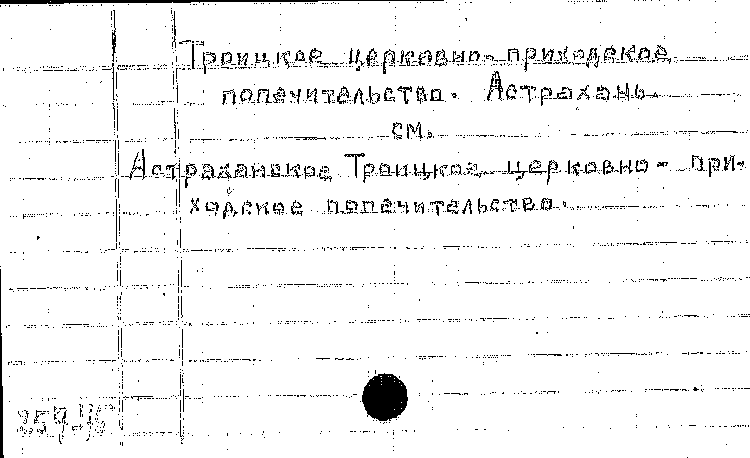 Троицкое церковно-приходское
попечительство. Астрахань.
см.
Астраханское Троицкое церковно-при-
ходское попечительство.